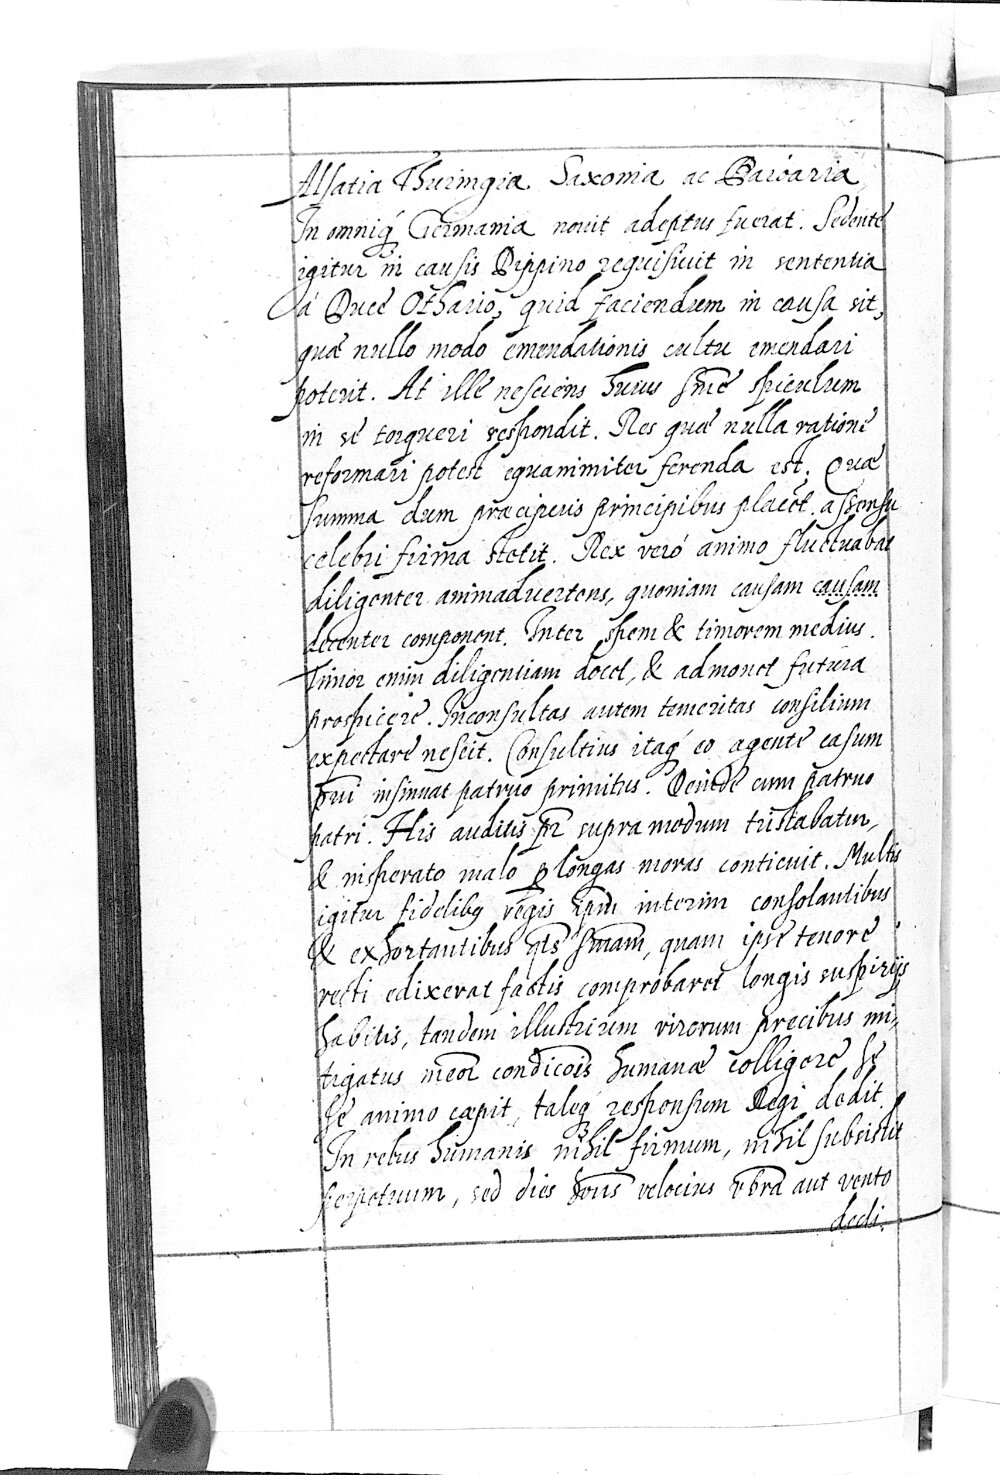 Alsatia Thuringia Saxonia ac Bavaria,
In omniq́ Germania novit adeptus fuerat. Sedente
igitur in causis Pippino requisivit in sententia
á Duce Othario, quid faciendum in causa sit,
quæ nullo modo emendationis cultu emendari
poterit. At ille nesciens huius sn̄iæ spiculum
in se torqueri respondit. Res quæ nulla ratione
reformari potest equanimiter ferenda est. Quæ
summa dum præcipuis principibus placet, assensu
celebri firma stetit. Rex veró animo fluctuabat
diligenter animadvertens, quoniam causam causam
decenter componeret. Inter spem & timorem medius.
Timor enim diligentiam docet, & admonet futura
prospicere. Inconsultas autem temeritas consilium
expectare nescit. Consultius itaq́ eo agente casum
p̄ui insinuat patruo primitus. Deinde cum patruo
patri. His auditis p̄r supra modum tristabatur,
& insperato malo p longas moras conticuit. Multis
igitur fidelibꝫ regis ip̄m interim consolantibus
& exhortantibus q̄ts sn̄iam, quam ipse tenore
recti edixerat factis comprobaret longis suspirijs
habitis, tandem illustrium virorum precibus mi,
tigatus meōr condicōis humanæ colligere se
se animo cæpit, taleq́ responsum Regi dedit.
In rebus humanis nihil firmum, nihil subsistit
perpetuum, sed dies hōis velocius v̄bra aut vento
decli.